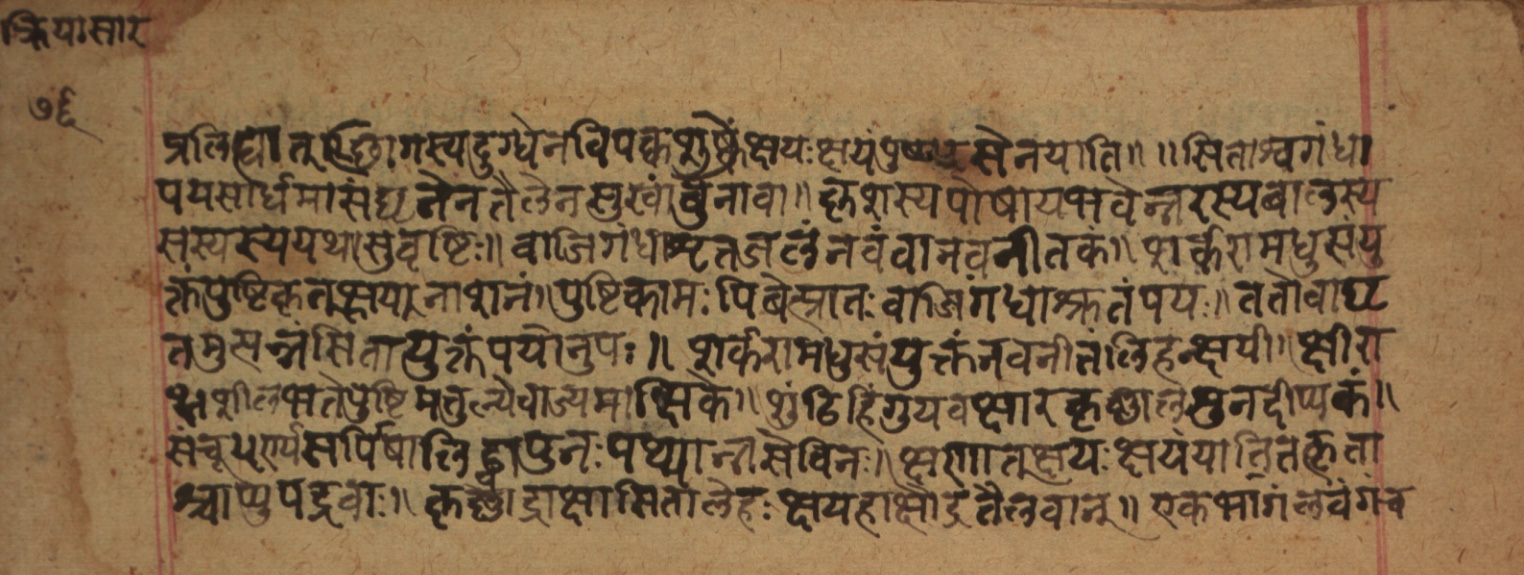 क्रियासार
७६
प्रलिह्यात् छागस्यदुग्धेनविपक्कशुष्कंक्षयःक्षयं याति॥ ॥सिताश्वगंधा
पयसार्धमासंघृतेनतैलेनसुखांबुनावा॥कृशस्यपोषायभवेन्नरस्यबालस्य
सस्यस्ययथासुवृष्टिः॥वाजिगंधाशृतजलंनवंवानवनीतकं॥शर्करामधुसंयु
क्तंपुष्टिकृत्क्षयनाशनं॥पुष्टिकामःपिबेत्प्रातःवाजिगंधाशृतंपयः॥ततोवाघृ
त सितायुक्तंपयोनुपः॥ शर्करामधुसंयुक्तंनवनीतंलिहन्क्षयी॥क्षीरा
शीलभतेपुष्टिमतुल्येवाज्यमाक्षिके॥शुंठिहिंगुयवक्षारकृष्णालसुनदीप्यकं॥
संचूर्ण्यसर्पिषालिह्वापुनःपथ्यान्नसेविनः॥क्षणात्क्षयःक्षयंयातितत्कृता
श्चाप्युपद्रवाः॥कृष्णाद्राक्षासितालेहःक्षयहाक्षौद्रतैलवान्॥एकभागंलवंगंच